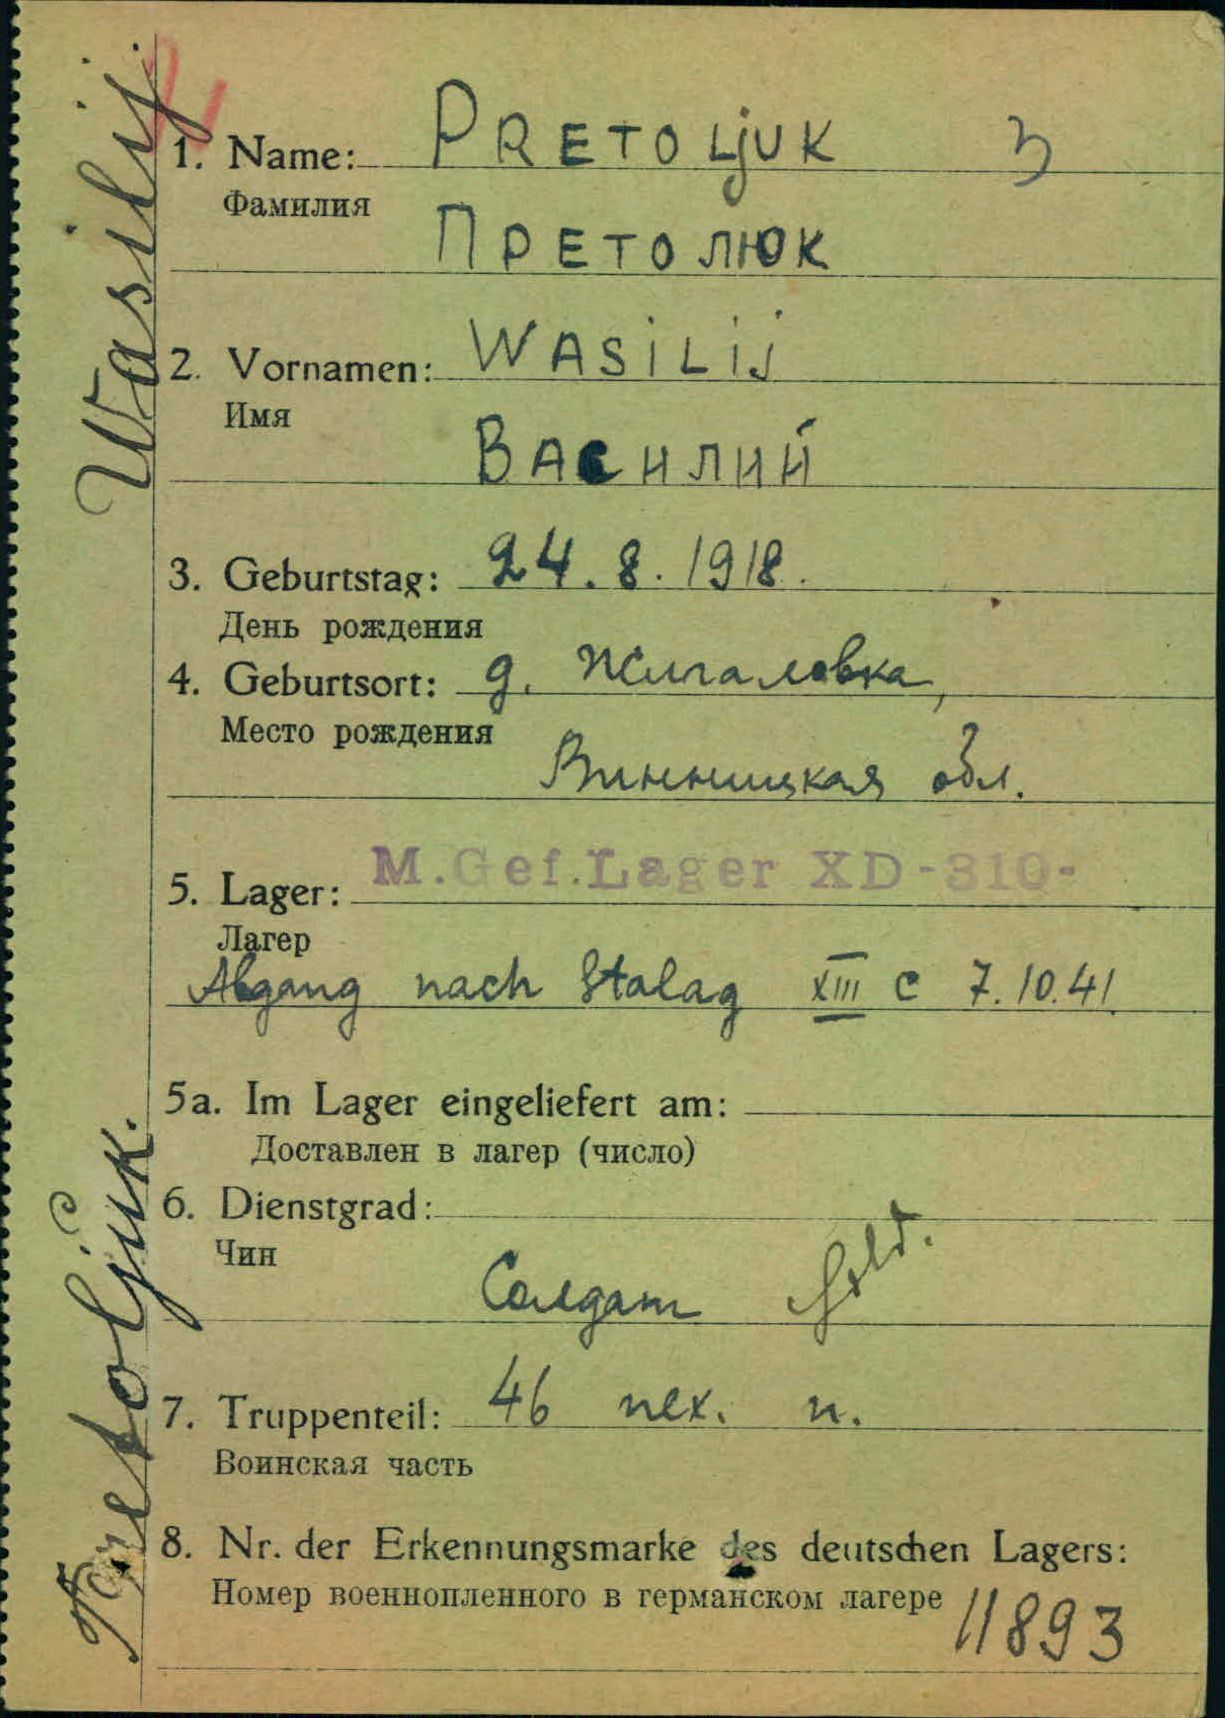 1. Name: PRETOLjUK 3
Фамилия
ПРЕТОЛЮК
2. Vornamen: WASiLij
Имя
ВАСИЛИЙ
3. Geburtstag: 24.8.1918.
День рождения
4. Geburtsort: д. Жигаловка,
Место рождения
Винницкая обл.
5. Lager: M.Gef.Lager XD-310-
Лагер
Abgang nach Stalag XIII C 7.10.41
5a. Im Lager eingeliefert am:
Доставлен в лагер (число)
6. Dienstgrad:
Чин
Солдат Sold.
7. Truppenteil: 46 пех. п.
Воинская часть
8. Nr. der Erkennungsmarke des deutschen Lagers:
Номер военнопленного в германском лагере 11893
Pretoljuk. Wasilij.